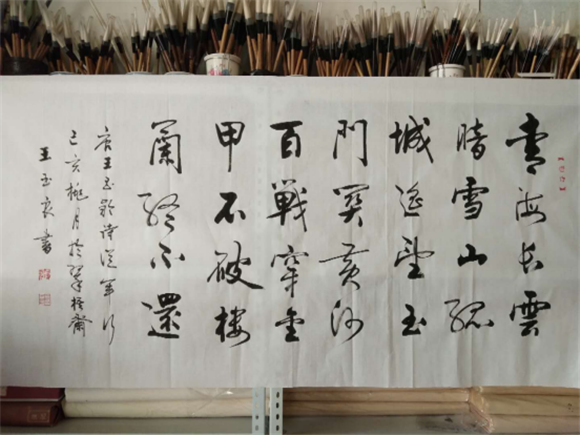 青海长雲
暗雪山孤
城遥望玉
門関黄沙
百戰穿金
甲不破楼
蘭終不還
唐王昌龄诗從軍行
己亥桃月於翠斋
王玉良書